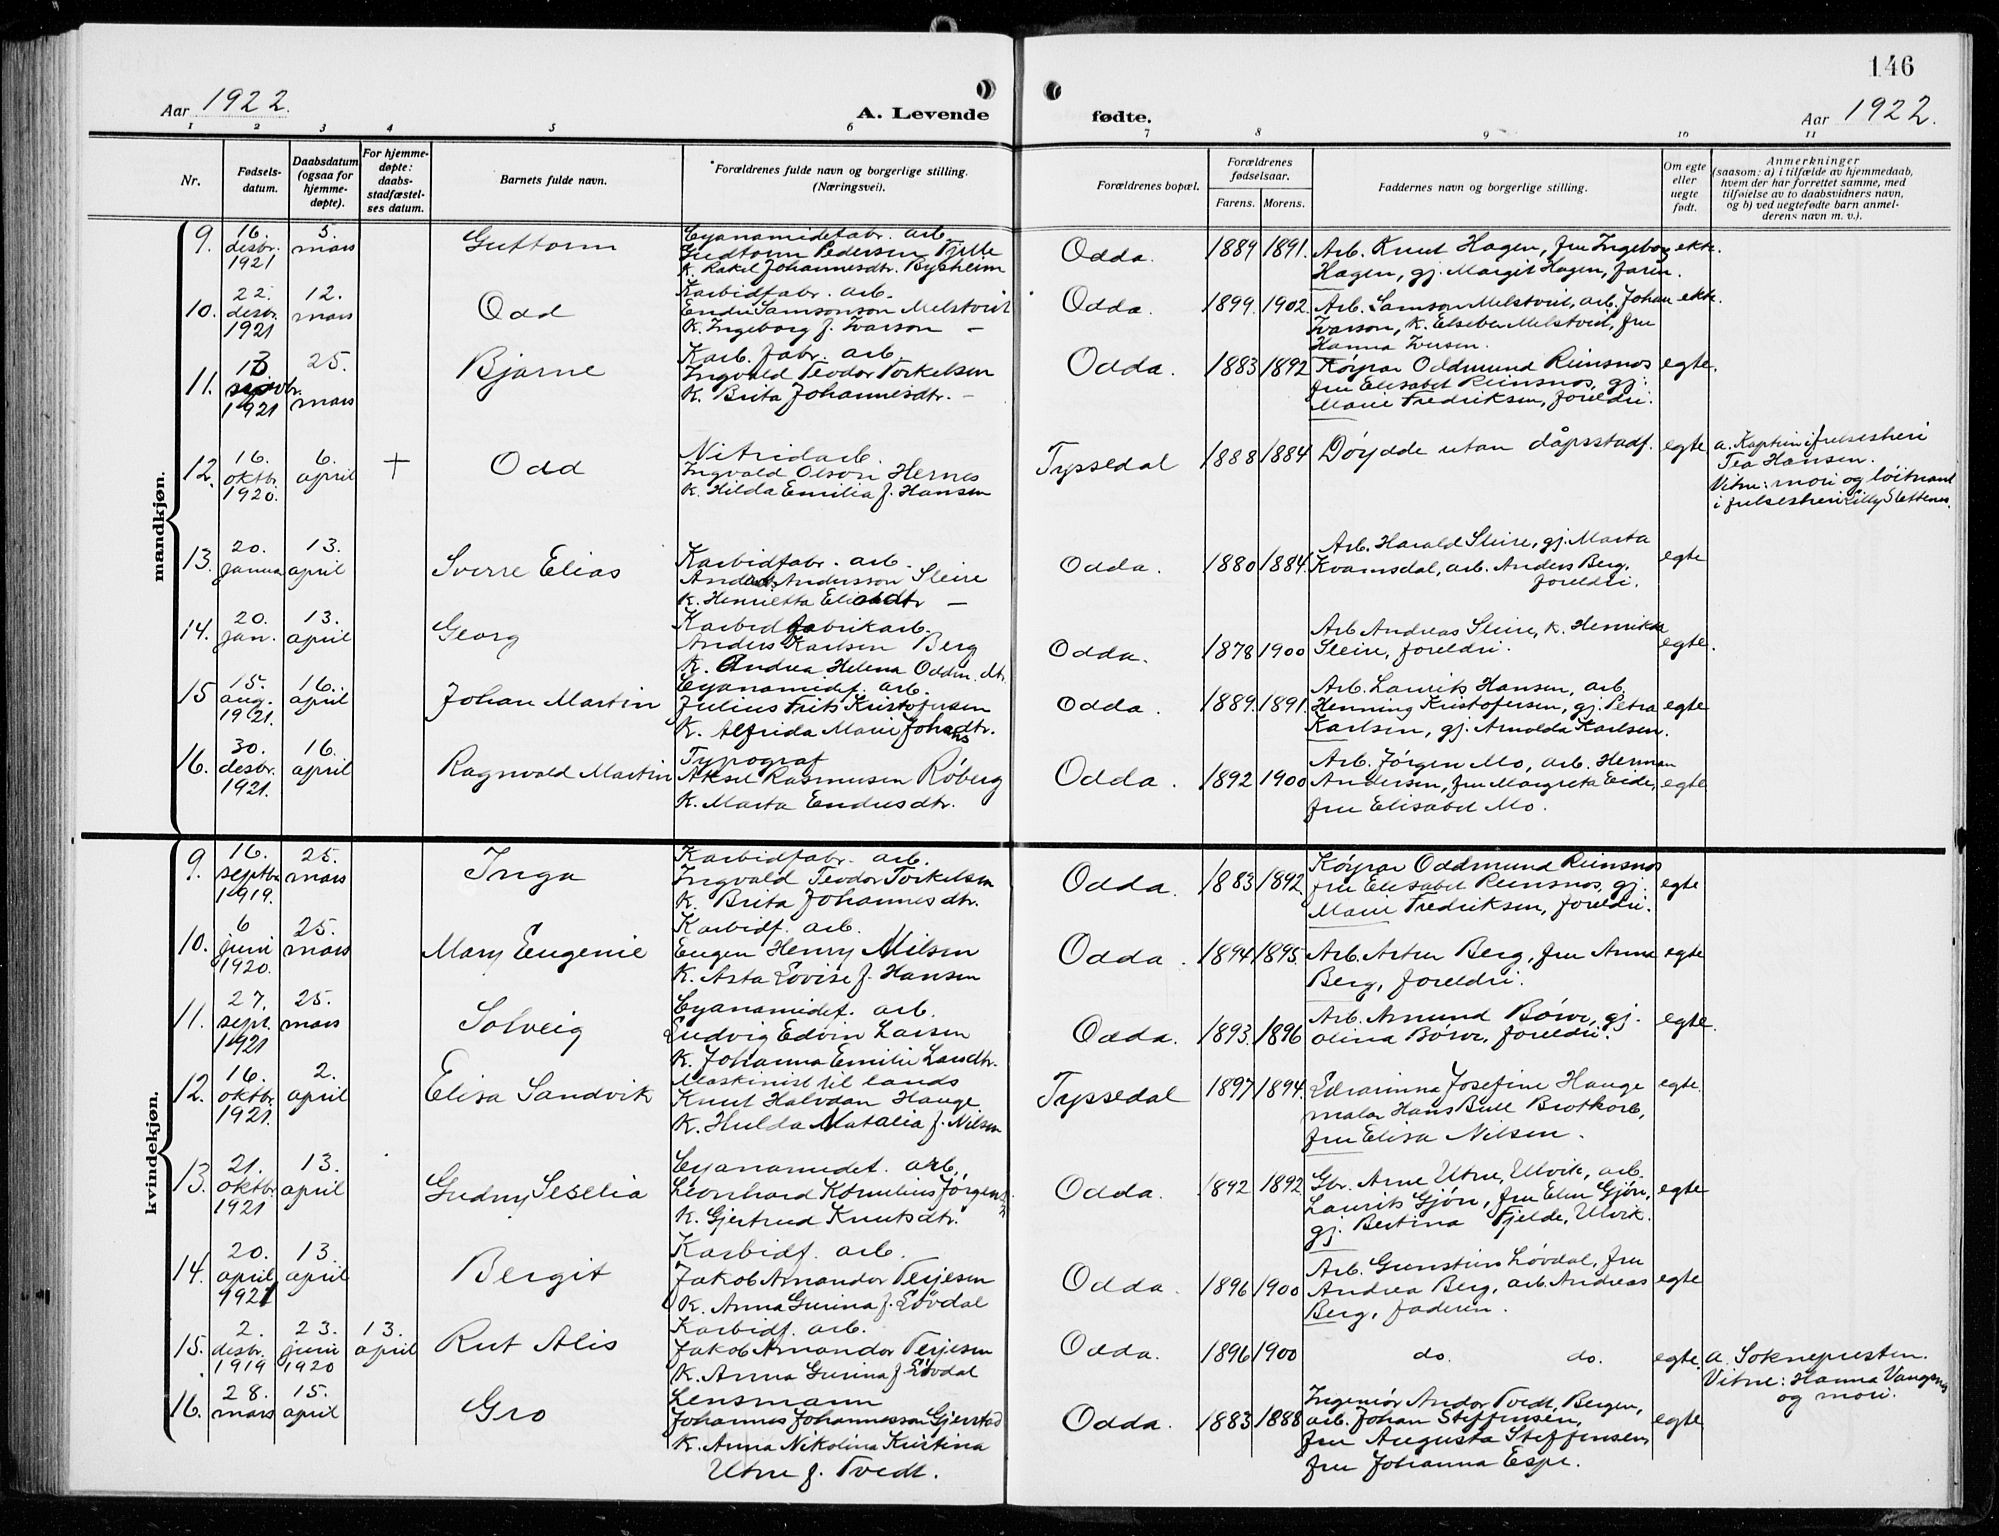 146
Aar 1922.
A. Levende
fødte.
Aar 1922.
1 2 3 4 5 6 7 8 9 10 11
Nr.
Fødsels-
datum.
Daabsdatum
(ogsaa for
hjemme-
døpte).
For hjemme-
døpte:
daabs-
stadfæstel-
ses datum.
Barnets fulde navn.
Forældrenes fulde navn og borgerlige stilling.
(Næringsvei).
Forældrenes bopæl.
Forældrenes
fødselsaar.
Farens. Morens.
Faddernes navn og borgerlige stilling.
Om egte
eller
uegte
født.
Anmerkninger
(saasom: a) i tilfælde av hjemmedaab,
hvem der har forrettet samme, med
tilføielse av to daabsvidners navn,
og b) ved uegtefødte barn anmel-
derens navn m. v.).
mandkjøn.
9. 16. desbr. 1921 5. mars Guttorm
Cyanamidfabr. arb.
Gudtorm Pedersen Fjelle
K. Rakel Johannesdtr. Bysheim
Odda. 1889 1891.
Arb. Knut Hagen, fru Ingeborg
Hagen, gj. Margit Hagen, faren.
ekte.
10. 22. desbr. 1921 12. mars Odd
Karbidfabr. arb.
Endre Samsonson Melstveit
K. Ingeborg f. Ivarson —
Odda. 1899. 1902.
Arb. Samson Melstveit, arb. Johan
Ivarson, K. Elseber Melstveit, fru
Hanna Iversen.
ekte.
11. 13 novbr. 1921 25. mars Bjarne
Karb. fabr. arb.
Ingvald Teodor Torkelsen
K. Brita Johannesdtr. —
Odda. 1883 1892
Køyrar Oddmund Reinsnos
fru Elisabet Reinsnos, gj.
Marie Fredriksen, foreldri.
egte.
12. 16. oktbr. 1920. 6. april + Odd
Nitridarb.
Ingvald Olson Hernes
K. Hilda Emilia f. Hansen
Tyssedal 1888 1884
Døydde utan dåpsstadf.
egte
a. Kaptein i frelsesheri
Tea Hansen.
Vitne: mori og løitnant
i frelsesheri Lilly Slettenes.
13. 20. janua 13. april Sverre Elias
Karbidfabr. arb.
Andersson Sleire
K. Henrietta —
Odda. 1880 1884.
Arb. Harald Sleire, gj. Marta
Kvamsdal, arb. Anders Berg,
foreldri.
egte
14. 20. jan. 13. april Georg
Karbidfabrikarb.
Anders Karlsen Berg
K. Andrea Helena Oddm. dtr.
Odda. 1878 1900
Arb Andreas Sleire, K. Henrikka
Sleire, foreldri.
egte.
15 15. aug. 1921. 16. april Johan Martin
Cyanamidf. arb.
Julius Frits Kristofersen
K. Alfrida Marie Johansdtr.
Odda. 1889. 1891.
Arb. Laurits Hansen, arb.
Henning Kristofersen, gj. Petra
Karlsen, gj. Arnolda Karlsen.
egte
16. 30. desbr. 1921. 16. april Ragnvald Martin
Typograf
Aksel Rasmusen Røberg
K. Marta Endresdtr.
Odda. 1892 1900
Arb. Jørgen Mo, arb. Herman
Andersen, fru Margreta Eide,
fru Elisabet Mo.
egte
kvindekjøn.
9. 16. septbr 1919. 25. mars Inga
Karbidfabr. arb.
Ingvald Teodor Torkelsen
K. Brita Johannesdtr.
Odda. 1883 1892
Køyrar Oddmund Reinsnos
fru Elisabet Reinsnos, gj.
Marie Fredriksen, foreldri.
egte
10. 6 juni 1920. 25. mars Mary Eugenie
Karbidf. arb.
Eugen Henry Nilsen
K. Asta Lovise f. Hansen
Odda. 1894 1895.
Arb. Artur Berg, fru Anna
Berg, foreldri.
egte
11. 27. sept. 1921 25. mars Solveig
Cyanamidf. arb.
Ludvig Edvin Larsen
K. Johanna Emilie Larsdtr.
Odda. 1893. 1896
Arb. Amund Børve, gj.
Olina Børve, foreldri.
egte.
12. 16. oktbr. 1921. 2. april Elisa Sandvik
Maskinist til lands
Knut Halvdan Hauge
K. Hulda Natalia f. Nilsen
Tyssedal 1897 1894.
Lærarinna Josefine Hauge
malar Hans Bull Brotkorb,
fru Elisa Nilsen.
egte.
13. 21. oktbr 1921 13. april Gudny Seselia
Cyanamidf. arb.
Leonhard Kornelius Jørgensen
K. Gjertrud Knutsdtr.
Odda. 1892 1892
Gbr. Arne Utne, Ulvik, arb.
Laurits Gjøn, fru Elen Gjøn,
gj. Bertina Fjelde, Ulvik.
egte
14. 20. april 1921 13. april Bergit
Karbidf. arb.
Jakob Amandor Terjesen
K. Anna Gurina f. Løvdal
Odda. 1896 1900
Arb. Gunstius Løvdal, fru
Andrea Berg, arb. Andreas
Berg, faderen.
egte
15. 2. desbr. 1919 23. juni 1920 13. april Rut Alis
Karbidf. arb.
Jakob Amandor Terjesen
K. Anna Gurina f. Løvdal
Odda. 1896 1900
do. do.
egte.
a. Soknepresten.
Vitne: Hanna Vangsnes
og mori.
16. 28. mars 15. april Gro
Lensmann
Johannes Johannesson Gjerstad
K. Anna Nikolina Kristina
Utne f. Tvedt.
Odda. 1883 1888
Ingeniør Andor Tvedt, Bergen,
arb. Johan Steffensen,
fru Augusta Steffensen,
fru Johanna Espe.
egte